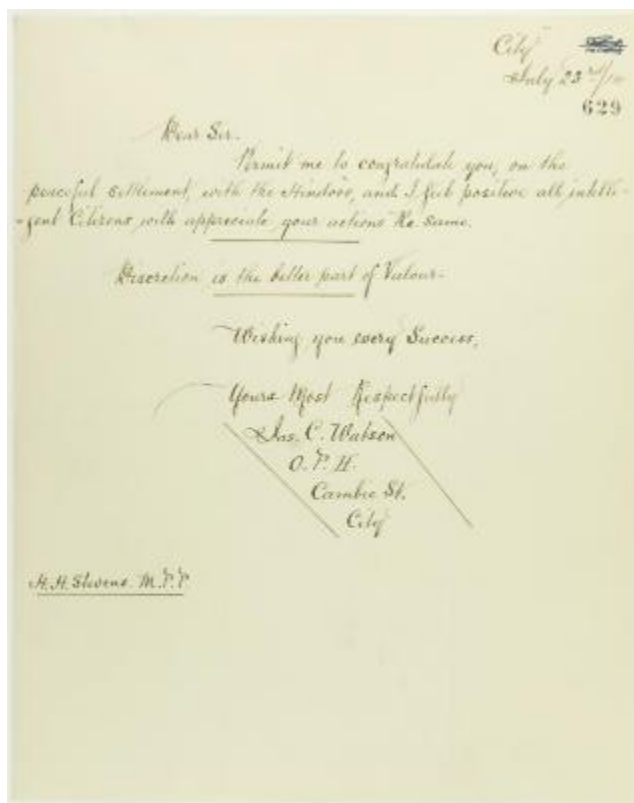 City
July 23rd/14
629
Dear Sir.
Permit me to congratulate you, on the
peaceful settlement, with the Hindoos, and I feel positive all intelli-
-gent Citizens, will appreciate your actions Re Same.
Discretion is the better part of Valour-
Wishing you every Success,
Yours Most Respectfully
Jas. C. Watson
O.P.H.
Cambie St.
City
H.H. Stevens. M.P.P.